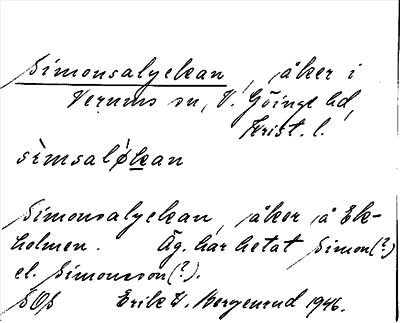 Simonsalyckan, åker i
Verums sn, V. Göinge hd,
Krist. l.
sìmsalỳkan
Simonsalyckan, åker å Ek-
holmen. Äg. har hetat Simon(?)
el. Simonsson(?).
SOS Erik W. 1946.